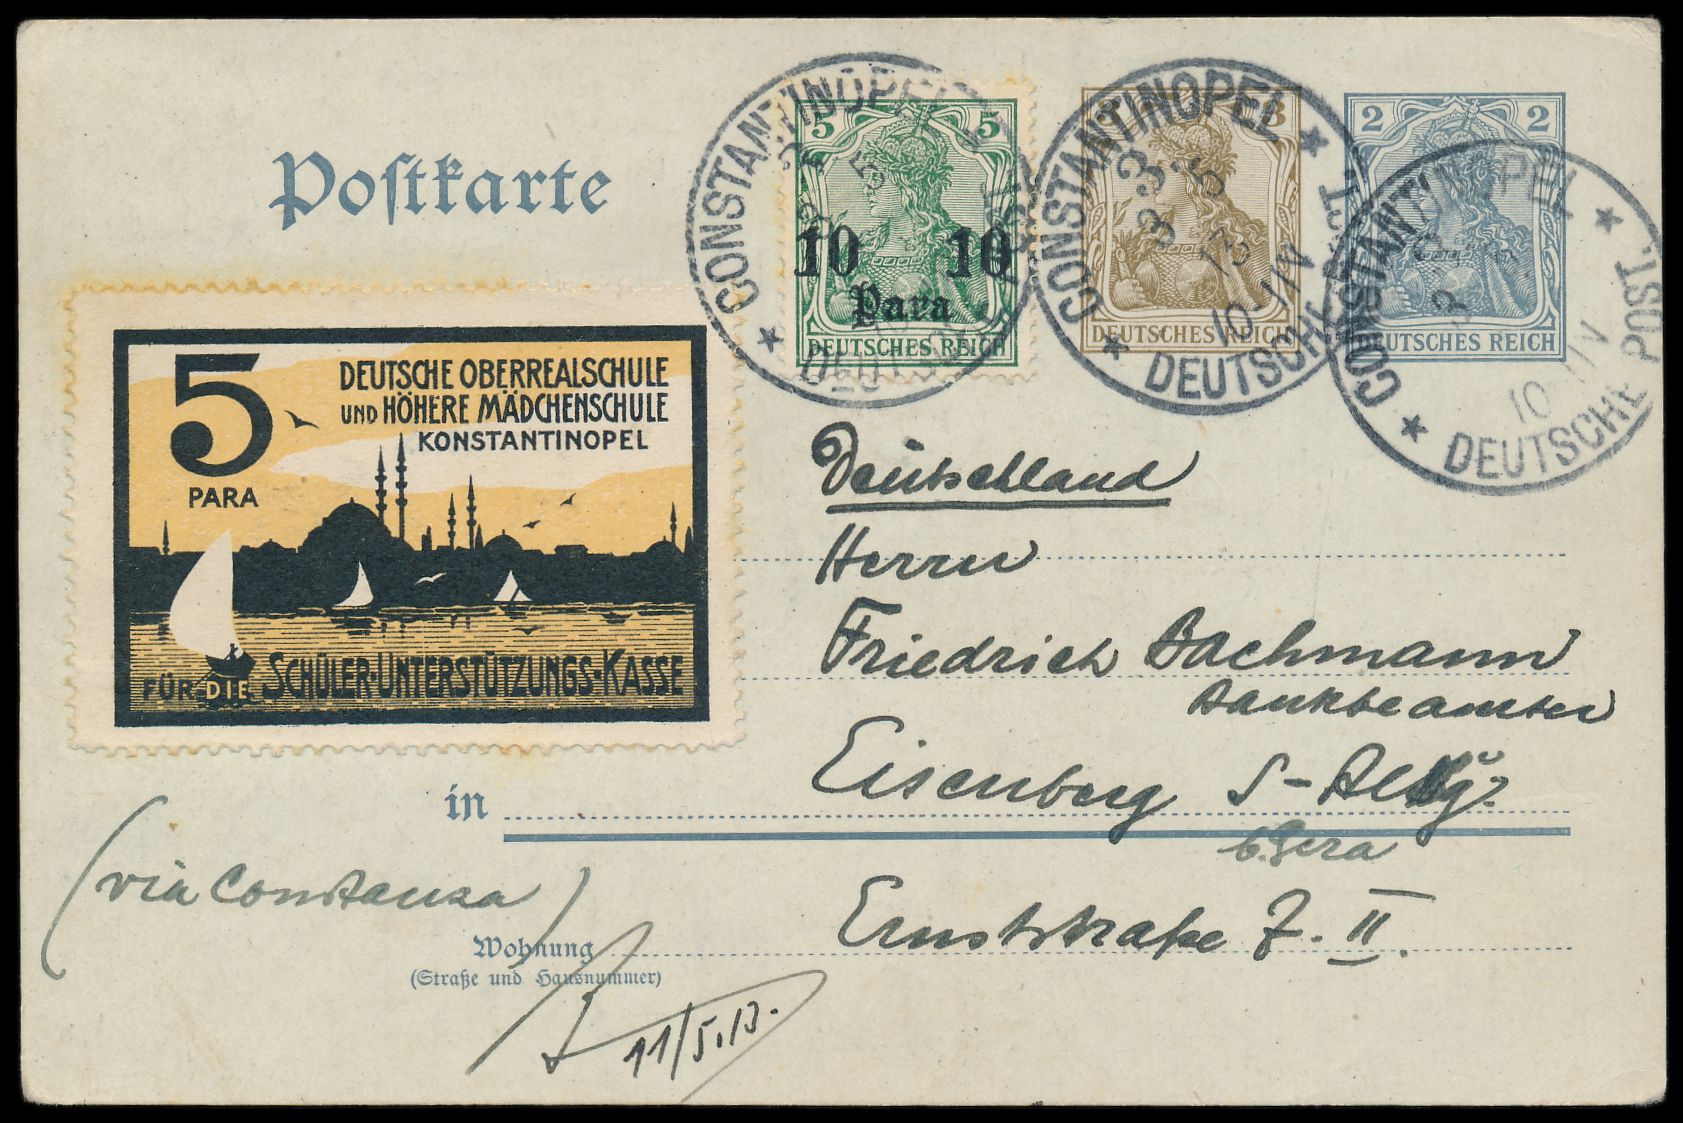 Postkarte
5 5
10 10
Para
DEUTSCHES REICH
3
DEUTSCHES REICH
2 2
DEUTSCHES REICH
CONSTANTINOPEL
DEUTSCHE POST
CONSTANTINOPEL
3 5
13
10-11V
DEUTSCHE POST
CONSTANTINOPEL
10-11V
DEUTSCHE POST
5
PARA
DEUTSCHE OBERREALSCHULE
UND HÖHERE MÄDCHENSCHULE
KONSTANTINOPEL
FÜR DIE SCHÜLER-UNTERSTÜTZUNGS-KASSE
Deutschland
Herrn
Friedrich Bachmann
Bankbeamter
in Eisenberg S-Altbg.
b. Gera
(via Constanza)
Wohnung Ernststraße 7. II.
(Straße und Hausnummer)
11/5.13.